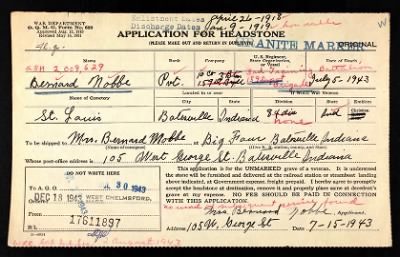 WAR DEPARTMENT
O. Q. M. G. Form No. 623
Enlistment Dates April 26-1918
Discharge Dates Jan 9-1919
APPLICATION FOR HEADSTONE
(PLEASE MAKE OUT AND RETURN IN DUPLICATE)
GRANITE MARKER
ORIGINAL
ASN 2,069,629
Bernard Nobbe
Pvt.
July 5-1943
Name of Cemetery
Located in or near
St. Louis
Batesville Indiana
84 div
none
To be shipped to Mrs. Bernard Nobbe at Big Four Batesville Indiana
Whose post-office address is 105 West George St. Batesville Indiana
DO NOT WRITE HERE
This application is for the UNMARKED grave of a veteran.
It is understood the stone will be furnished and delivered at the railroad station or steamboat landing
above indicated, at Government expense, freight prepaid. I hereby agree to promptly
accept the headstone at destination, remove it and properly place same at decedent's
grave at my expense. NO FEE SHOULD BE PAID IN CONNECTION
WITH THIS APPLICATION.
To A. G. O. 30 1943
DEC 18 1943 WEST CHELMSFORD,
17611897
no record of subsequent service found
Mrs Bernard Nobbe, Applicant.
105 W. George St 7-15-1943